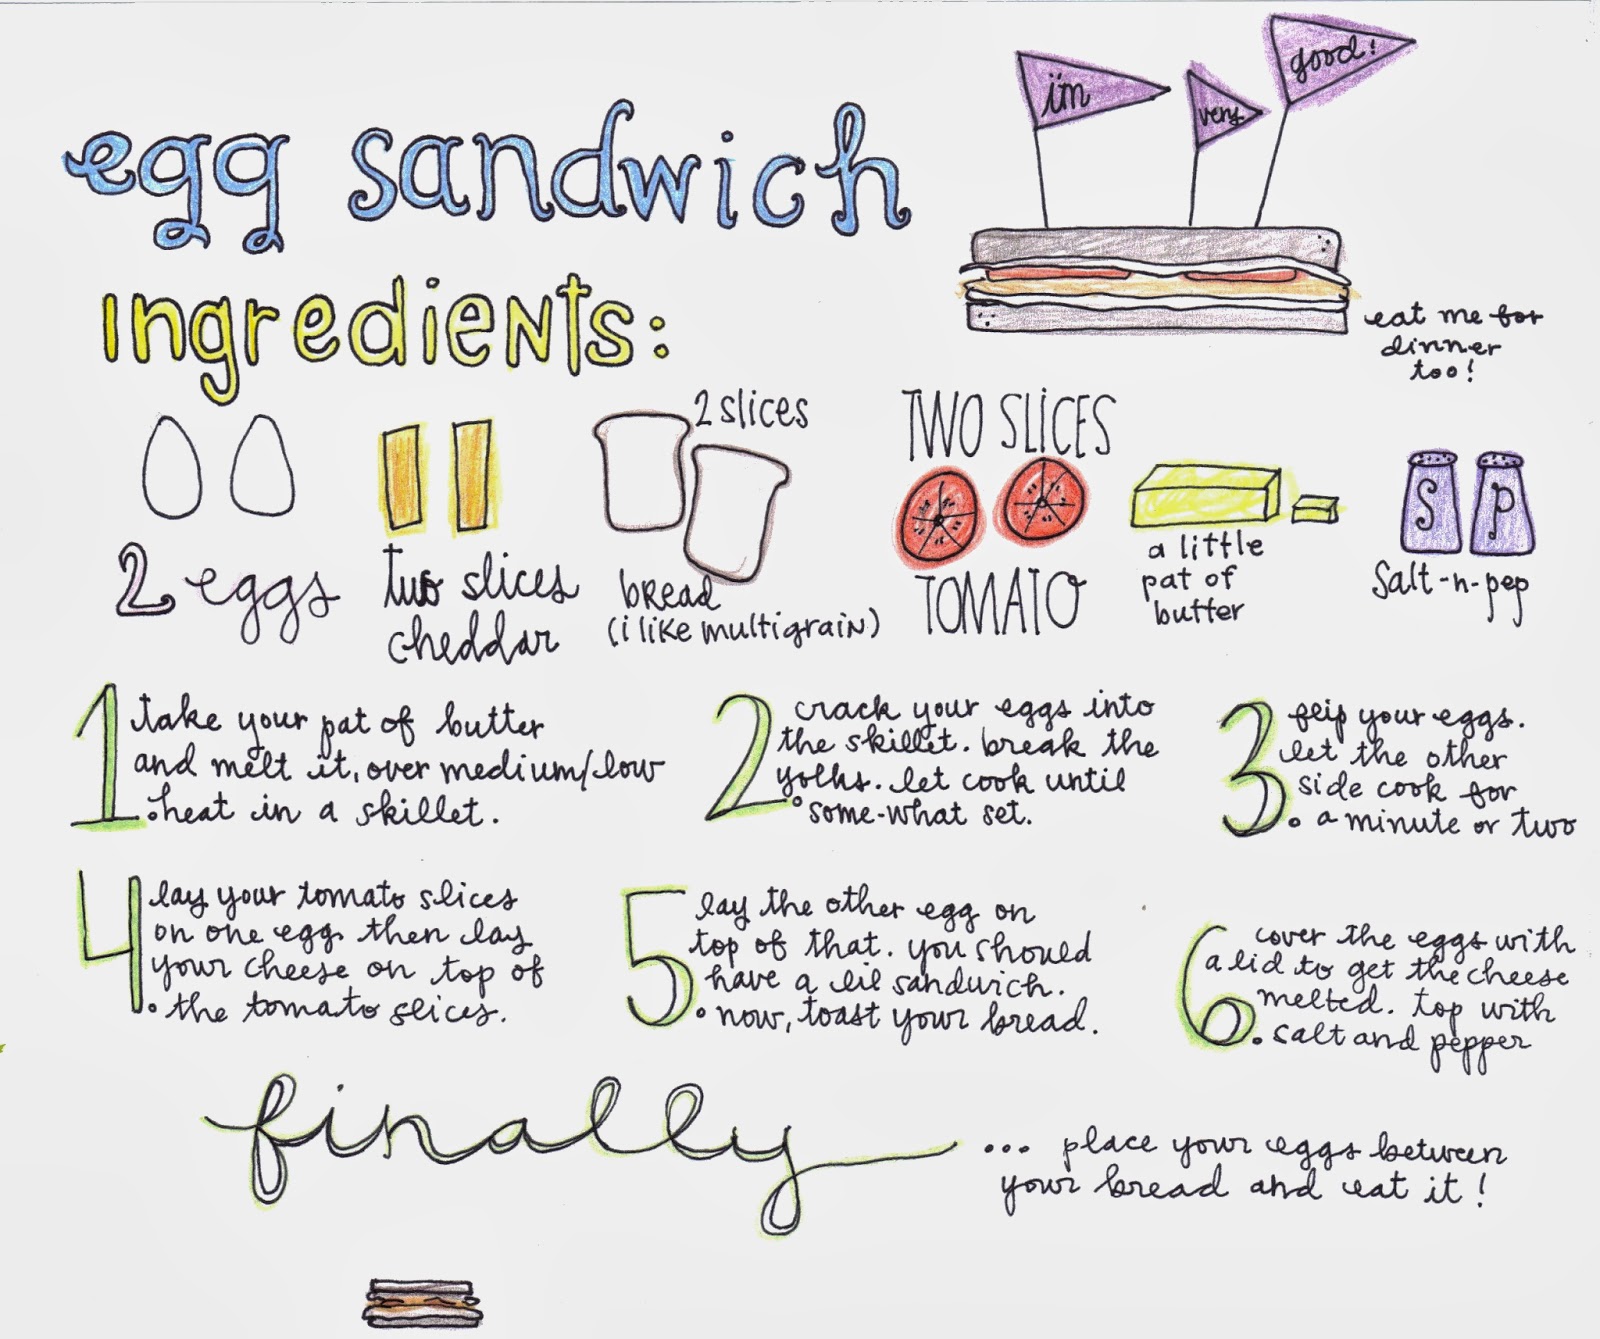 i'm
very
good!
egg sandwich
eat me for
dinner
too!
ingredients:
2 eggs
two slices
cheddar
2 slices
bread
(i like multigrain)
TWO SLICES
TOMATO
a little
pat of
butter
S P
Salt-n-pep
1. take your pat of butter
and melt it, over medium/low
heat in a skillet.
2. crack your eggs into
the skillet. break the
yolks. let cook until
some-what set.
3. flip your eggs.
let the other
side cook for
a minute or two
4. lay your tomato slices
on one egg then lay
your cheese on top of
the tomato slices.
5. lay the other egg on
top of that. you should
have a lil sandwich.
now, toast your bread.
6. cover the eggs with
a lid to get the cheese
melted. top with
salt and pepper
finally
... place your eggs between
your bread and eat it!